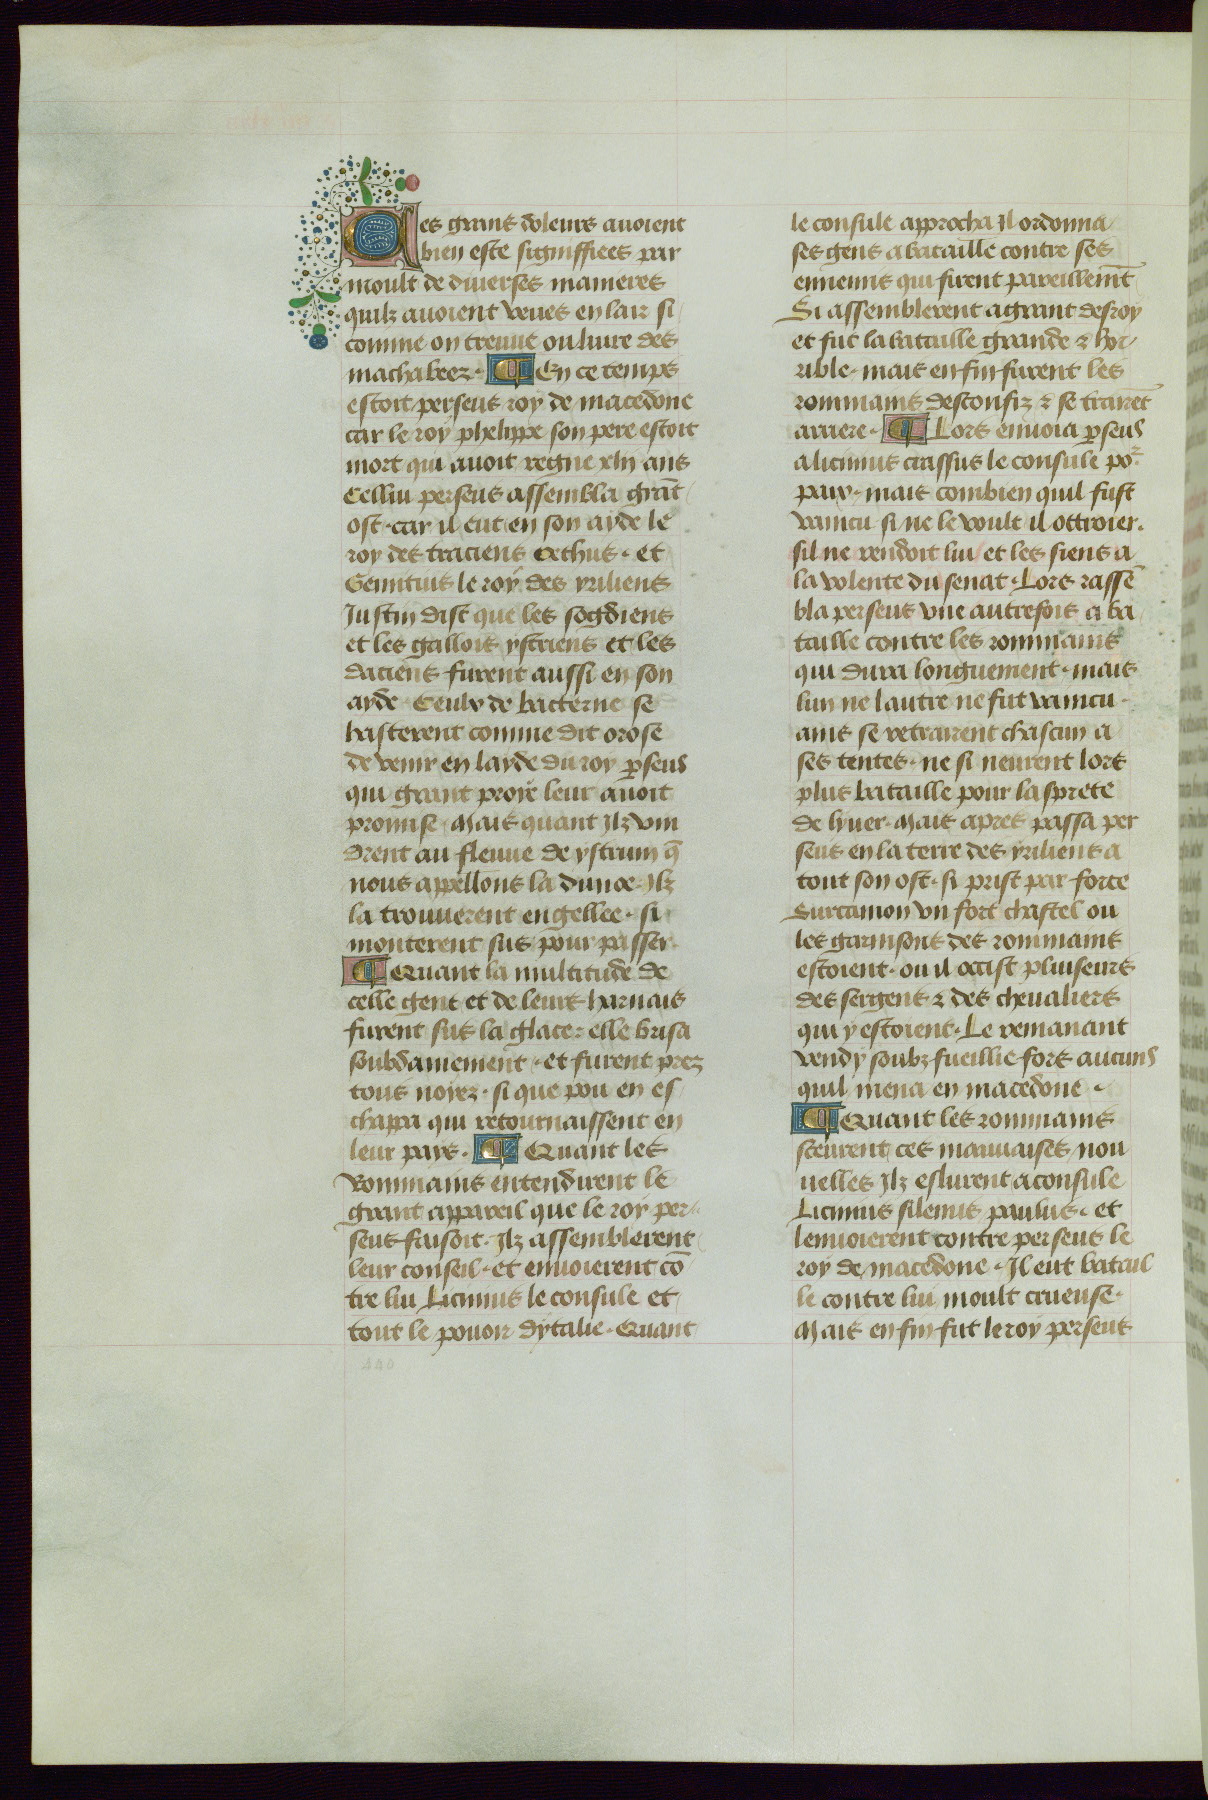 Ces grans doleurs auoient
bien este signiffiees par
moult de diuerses manieres
quilz auoient veues en lair si
comme on treuue ou liure des
machabeez. ¶ En ce temps
estoit perseus roy de macedone
car le roy phelippe son pere estoit
mort qui auoit regne xlij ans
Cellui perseus assembla grāt
ost. car il eut en son ayde le
roy des traciens Cethus. et
Genitius le roy des yriliens
Justin dist que les sogdiens
et les gallois ystriens et les
daciens furent aussi en son
ayde. Ceulx de bacterne se
hasterent comme dit orose
de venir en layde du roy ꝑseus
qui grant proye leur auoit
promise. Mais quant Ilz vin
drent au fleuue de ystrum q̄
nous appellons la dunoe. Ilz
la trouuerent engellee. si
monterent sus pour passer.
¶ Quant la multitude de
celle gent et de leurs harnais
furent sus la glace: elle brisa
soubdainement. et furent prez
tous noyez. si que pou en es
chappa qui retournaissent en
leur pays. ¶ Quant les
Rommains entendirent le
grant appareil que le roy per
seus faisoit. Ilz assemblerent
leur conseil. et enuoierent cō
tre lui Licinius le consule et
tout le pouoir dytalie. Quant
le consule approcha Il ordonna
ses gens a bataille contre ses
ennemis qui firent pareillemēt
Si assemblerent a grant desroy
et fut la bataille grande & hor
rible. mais en fin furent les
rommains desconfiz & se trairēt
arriere. ¶ Lors enuoia ꝑseus
a licinius crassus le consule po͛
paix. mais combien quil fust
vaincu si ne le voult il ottroier.
sil ne rendoit lui et les siens a
la volente du senat. Lors rassē
bla perseus vne autrefois a ba
taille contre les rommains
qui dura longuement. mais
lun ne lautre ne fut vaincu.
ains se retrairent chascun a
ses tentes. ne si neurent lors
plus bataille pour lasprete
de lyuer. Mais apres passa per
seus en la terre des yriliens a
tout son ost. si prist par force
Surcamon vn fort chastel ou
les garnisons des rommains
estoient. ou il occist pluiseurs
des sergens & des cheualiers
qui y estoient. Le remanant
vendy soubz fueillie fors aucuns
quil mena en macedone.
¶ Quant les rommains
sceurent ces mauuaises nou
uelles Ilz eslurent a consule
Licinius silenus paulus. et
lenuoierent contre perseus le
roy de macedone. Il eut batail
le contre lui moult crueuse.
Mais en fin fut le roy perseus